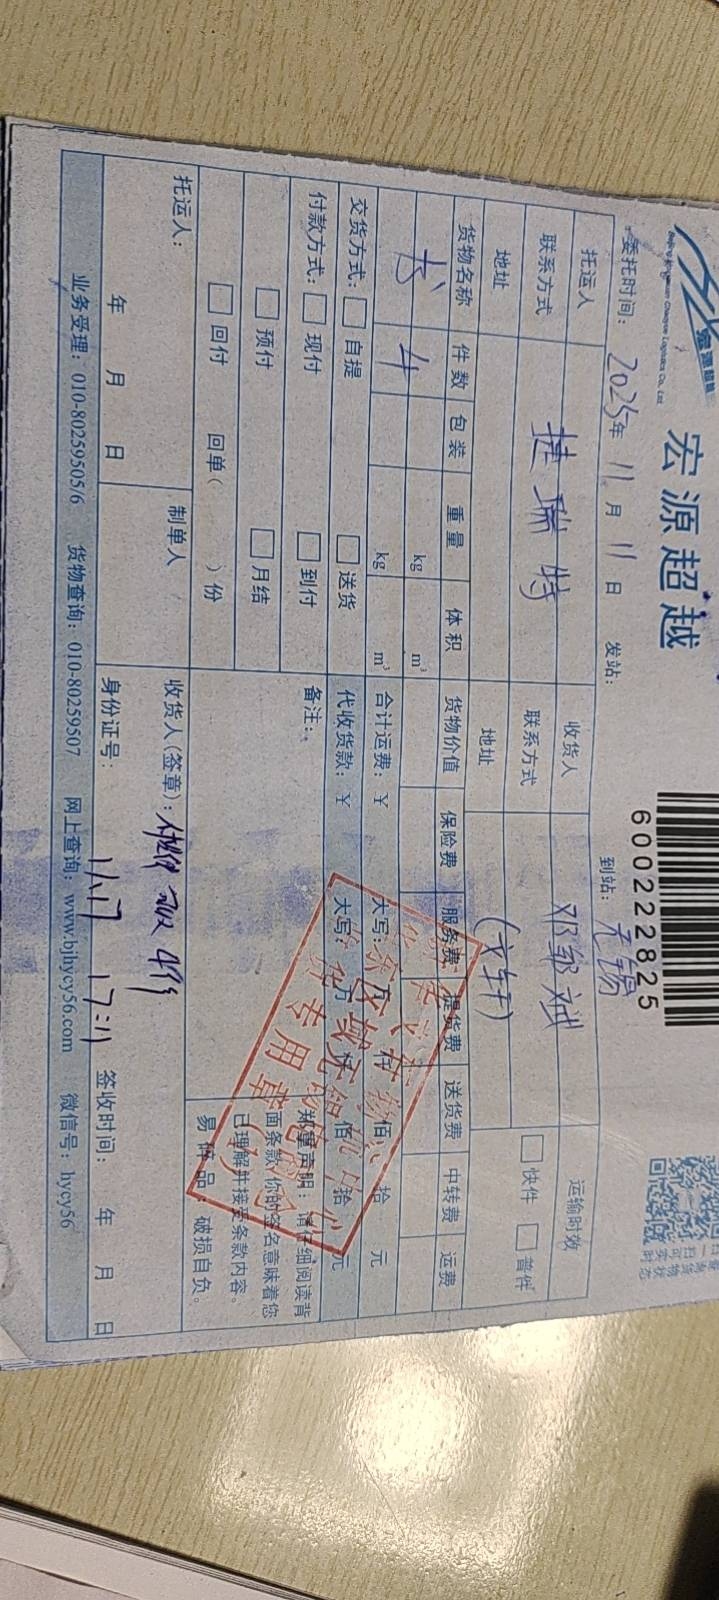 宏源超越
600222825
委托时间: 2025年 11月 11日 发站: 到站: 无锡
托运人 捷瑞特 收货人 邓郁斌 运输时效
联系方式 联系方式 快件 普件
地址 地址 (文轩)
货物名称 件数 包装 重量 体积 货物价值 保险费 服务费 提货费 送货费 中转费 运费
书 4 kg m³
kg m³ 合计运费: ¥ 大写: 万 仟 佰 拾 元
交货方式: 自提 送货 代收货款: ¥ 大写: 万 仟 佰 拾 元
付款方式: 现付 到付 备注:
预付 月结
回付 回单( )份
郑重声明: 请仔细阅读背
面条款, 你的签名意味着您
已理解并接受条款内容。
易碎品: 破损自负。
托运人: 制单人 收货人(签章):
年 月 日 身份证号: 签收时间: 年 月 日
11.17 17:11
业务受理: 010-80259505/6 货物查询: 010-80259507 网上查询: www.bjhycy56.com 微信号: hycy56
专用章